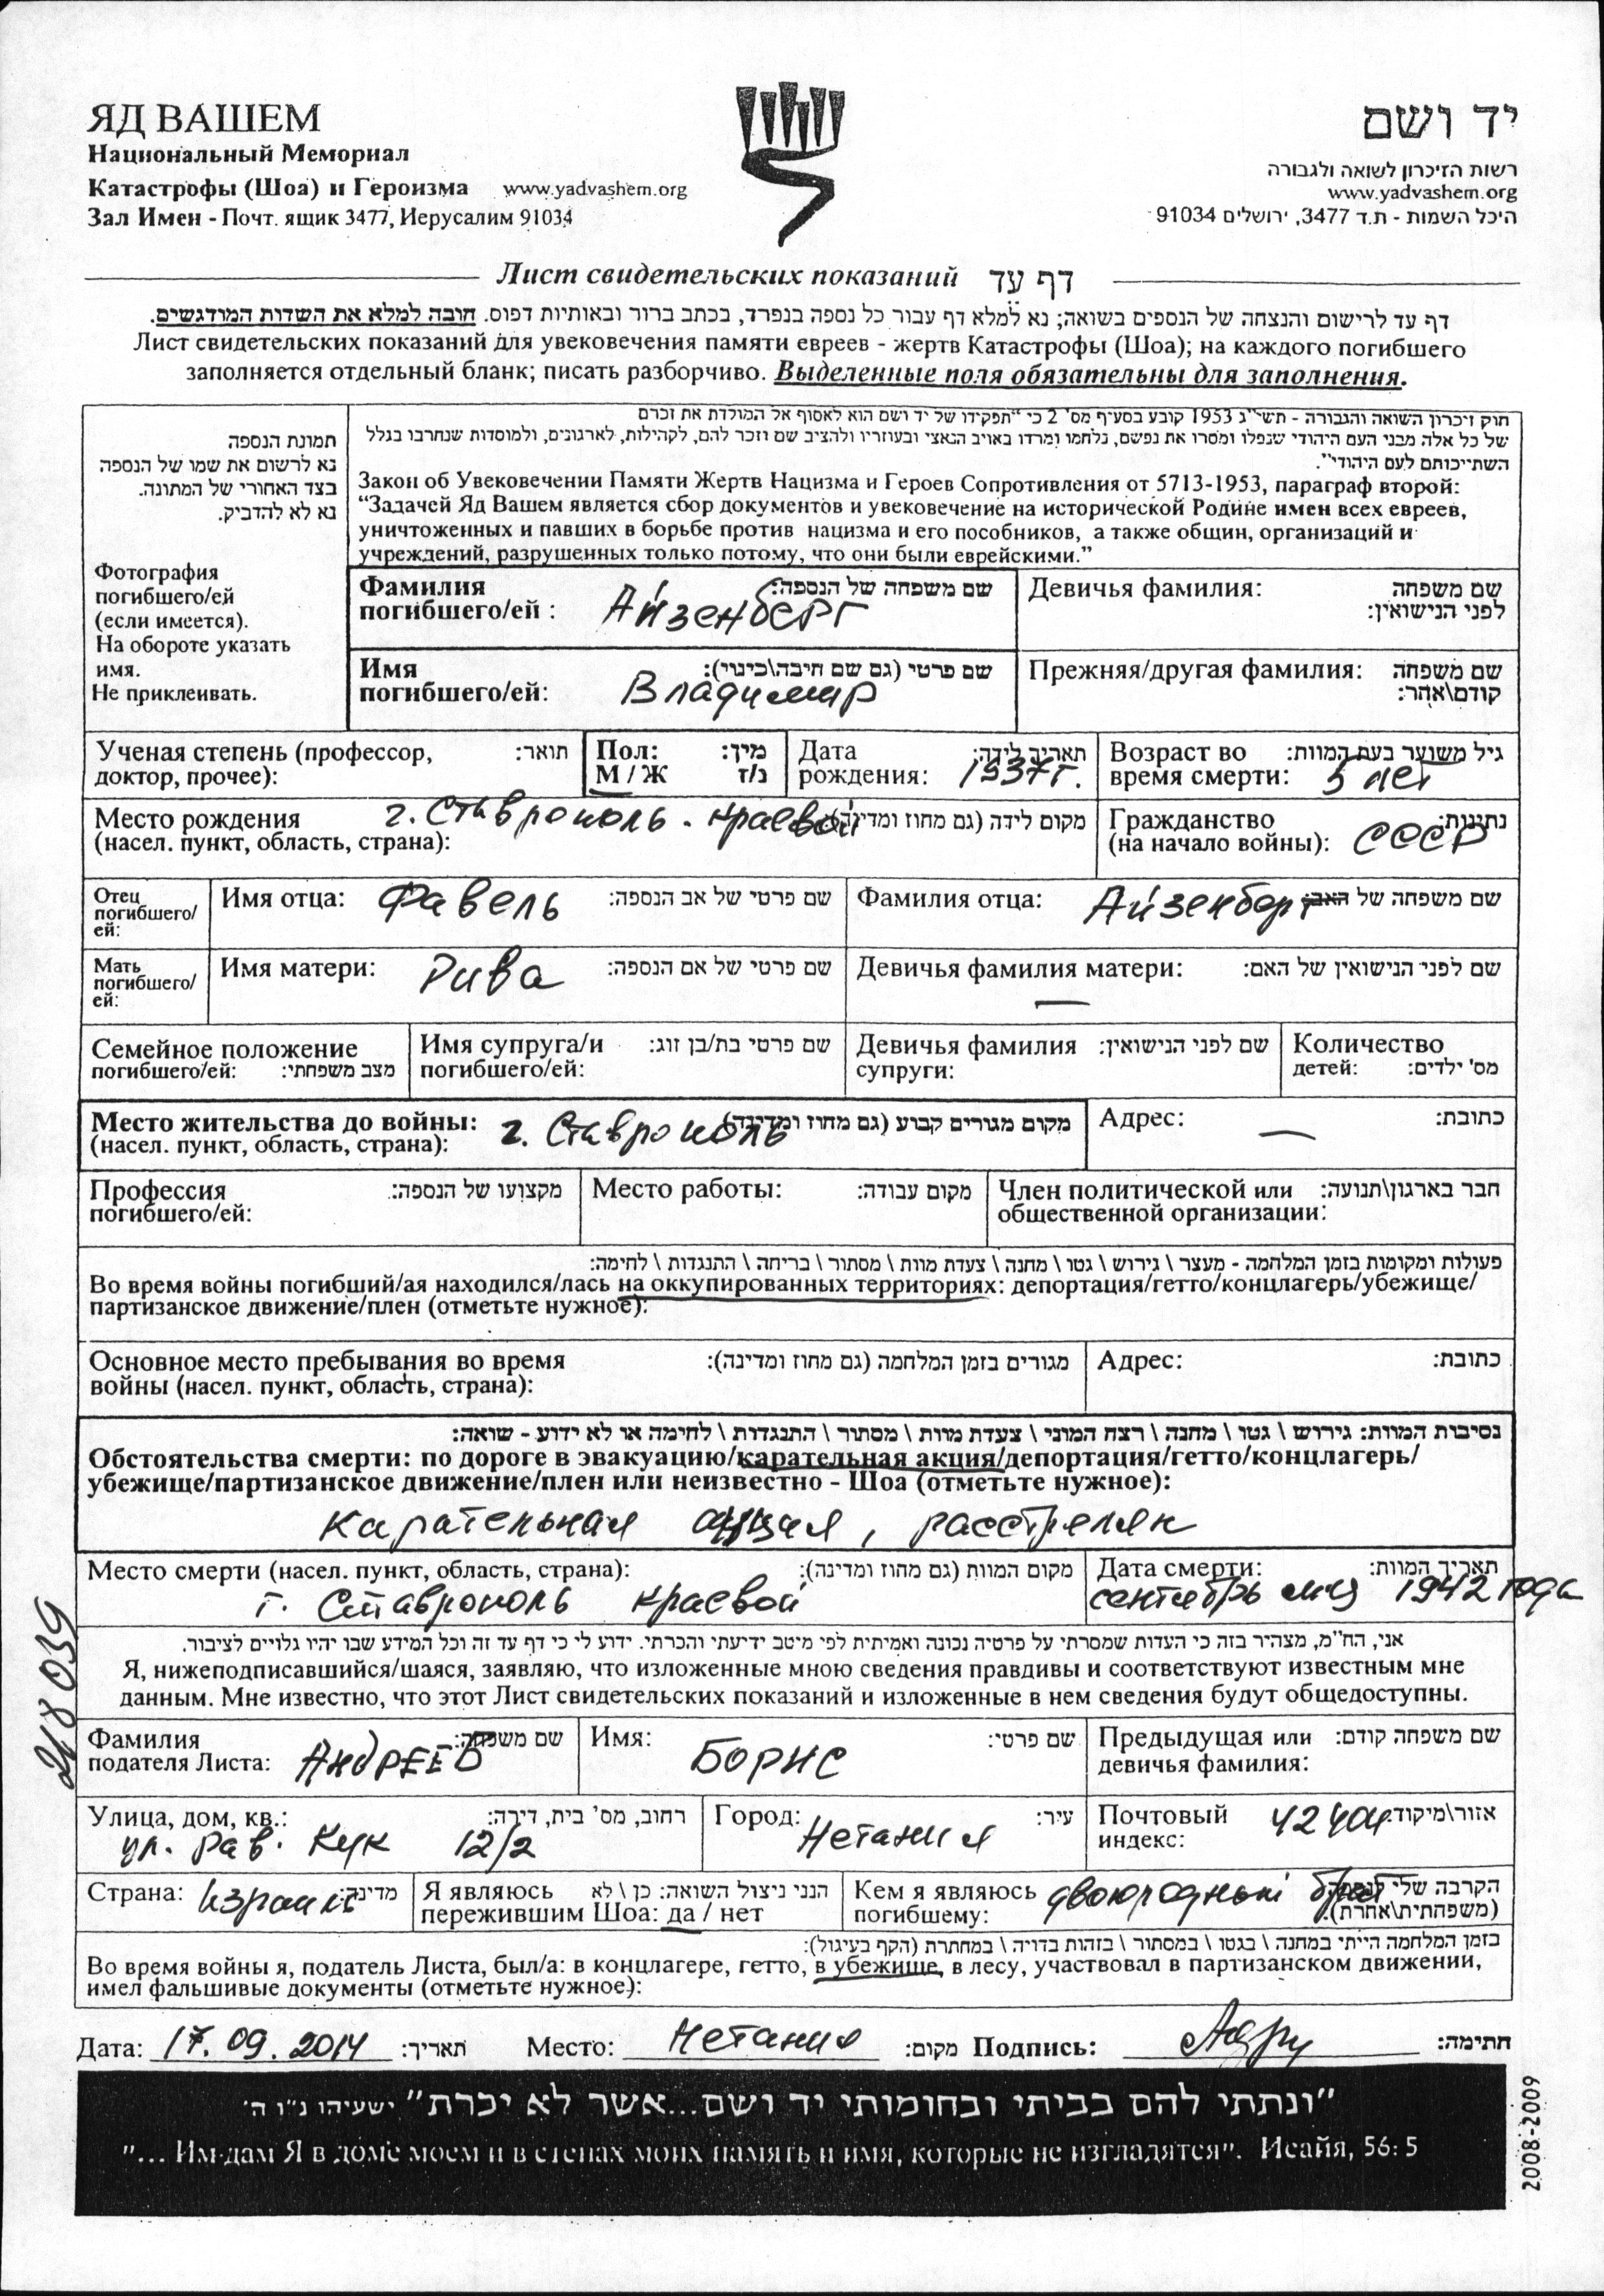 ЯД ВАШЕМ
Национальный Мемориал
Катастрофы (Шоа) и Героизма www.yadvashem.org
Зал Имен - Почт. ящик 3477, Иерусалим 91034
יד ושם
רשות הזיכרון לשואה ולגבורה
www.yadvashem.org
היכל השמות - ת.ד 3477, ירושלים 91034
Лист свидетельских показаний דף עד
דף עד לרישום והנצחה של הנספים בשואה; נא למלא דף עבור כל נספה בנפרד, בכתב ברור ובאותיות דפוס. חובה למלא את השדות המודגשים.
Лист свидетельских показаний для увековечения памяти евреев - жертв Катастрофы (Шоа); на каждого погибшего
заполняется отдельный бланк; писать разборчиво. Выделенные поля обязательны для заполнения.
תמונת הנספה
נא לרשום את שמו של הנספה
בצד האחורי של המתונה.
נא לא להדביק.
Фотография
погибшего/ей
(если имеется).
На обороте указать
имя.
Не приклеивать.
חוק זיכרון השואה והגבורה - תשי"ג 1953 קובע בסעיף מס' 2 כי "תפקידו של יד ושם הוא לאסוף אל המולדת את זכרם
של כל אלה מבני העם היהודי שנפלו ומסרו את נפשם, נלחמו ומרדו באויב הנאצי ובעוזריו ולהציב שם וזכר להם, לקהילות, לארגונים, ולמוסדות שנחרבו בגלל
השתייכותם לעם היהודי".
Закон об Увековечении Памяти Жертв Нацизма и Героев Сопротивления от 5713-1953, параграф второй:
“Задачей Яд Вашем является сбор документов и увековечение на исторической Родине имен всех евреев,
уничтоженных и павших в борьбе против нацизма и его пособников, а также общин, организаций и
учреждений, разрушенных только потому, что они были еврейскими.”
Фамилия שם משפחה של הנספה:
погибшего/ей : Айзенберг
Девичья фамилия: שם משפחה
לפני הנישואין:
Имя שם פרטי (גם שם חיבה\כינוי):
погибшего/ей: Владимир
Прежняя/другая фамилия: שם משפחה
קודם\אחר:
Ученая степень (профессор, תואר:
доктор, прочее):
Пол: מין:
М / Ж נ/ז
Дата תאריך לידה:
рождения: 1937г.
Возраст во גיל משוער בעת המוות:
время смерти: 5 лет
Место рождения г. Ставрополь - краевой מקום לידה (גם מחוז ומדינה):
(насел. пункт, область, страна):
Гражданство נתינות:
(на начало войны): СССР
Отец
погибшего/
ей:
Имя отца: Фавель שם פרטי של אב הנספה:
Фамилия отца: Айзенберг שם משפחה של האב:
Мать
погибшего/
ей:
Имя матери: Рива שם פרטי של אם הנספה:
Девичья фамилия матери: שם לפני הנישואין של האם:
—
Семейное положение
погибшего/ей: מצב משפחתי:
Имя супруга/и שם פרטי בת/בן זוג:
погибшего/ей:
Девичья фамилия שם לפני הנישואין:
супруги:
Количество
детей: מס' ילדים:
Место жительства до войны: г. Ставрополь מקום מגורים קבוע (גם מחוז ומדינה)
(насел. пункт, область, страна):
Адрес: — כתובת:
Профессия מקצועו של הנספה:
погибшего/ей:
Место работы: מקום עבודה:
Член политической или חבר בארגון\תנועה:
общественной организации:
פעולות ומקומות בזמן המלחמה - מעצר \ גירוש \ גטו \ מחנה \ צעדת מוות \ מסתור \ בריחה \ התנגדות \ לחימה:
Во время войны погибший/ая находился/лась на оккупированных территориях: депортация/гетто/концлагерь/убежище/
партизанское движение/плен (отметьте нужное):
Основное место пребывания во время מגורים בזמן המלחמה (גם מחוז ומדינה):
войны (насел. пункт, область, страна):
Адрес: כתובת:
נסיבות המוות: גירוש \ גטו \ מחנה \ רצח המוני \ צעדת מוות \ מסתור \ התנגדות \ לחימה או לא ידוע - שואה:
Обстоятельства смерти: по дороге в эвакуацию/карательная акция/депортация/гетто/концлагерь/
убежище/партизанское движение/плен или неизвестно - Шоа (отметьте нужное):
Карательная акция, расстрелян
Место смерти (насел. пункт, область, страна): מקום המוות (גם מחוז ומדינה):
г. Ставрополь краевой
Дата смерти: תאריך המוות:
сентябрь м-ц 1942 года
אני, הח"מ, מצהיר בזה כי העדות שמסרתי על פרטיה נכונה ואמיתית לפי מיטב ידיעתי והכרתי. ידוע לי כי דף עד זה וכל המידע שבו יהיו גלויים לציבור.
Я, нижеподписавшийся/шаяся, заявляю, что изложенные мною сведения правдивы и соответствуют известным мне
данным. Мне известно, что этот Лист свидетельских показаний и изложенные в нем сведения будут общедоступны.
218 039
Фамилия שם משפחה:
подателя Листа: Андреев
Имя: Борис שם פרטי:
Предыдущая или שם משפחה קודם:
девичья фамилия:
Улица, дом, кв.: רחוב, מס' בית, דירה:
ул. Рав. Кук 12/2
Город: Нетания עיר:
Почтовый 42404 אזור\מיקוד:
индекс:
Страна: Израиль מדינה:
Я являюсь הנני ניצול השואה: כן \ לא
пережившим Шоа: да / нет
Кем я являюсь двоюродный брат הקרבה שלי לנספה:
погибшему: (משפחתית\אחרת):
בזמן המלחמה הייתי במחנה \ בגטו \ במסתור \ בזהות בדויה \ במחתרת (הקף בעיגול):
Во время войны я, податель Листа, был/а: в концлагере, гетто, в убежище, в лесу, участвовал в партизанском движении,
имел фальшивые документы (отметьте нужное):
Дата: 17.09.2014 תאריך: Место: Нетания מקום: Подпись: חתימה:
"ונתתי להם בביתי ובחומותי יד ושם...אשר לא יכרת" ישעיהו נ"ו ה'
"... Им дам Я в доме моем и в стенах моих память и имя, которые не изгладятся". Исайя, 56: 5
2008-2009